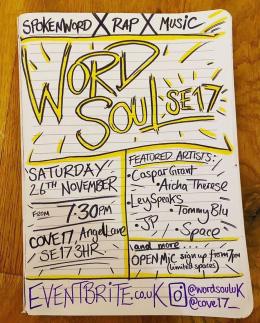 SPOKENWORD X RAP X MUSIC
WORD
SOUL SE17
SATURDAY
26TH NOVEMBER
FROM 7:30PM
COVE17, Angel Lane
SE17 3HR.
FEATURED ARTISTS:
• Caspar Grant
• Aicha Therese
• LeySpeaks
• Tommy Blu
• JP
• Space
and more...
OPEN MIC sign up from 7pm
(limited spaces)
EVENTBRITE.co.uk
@wordsouluk
@cove17_